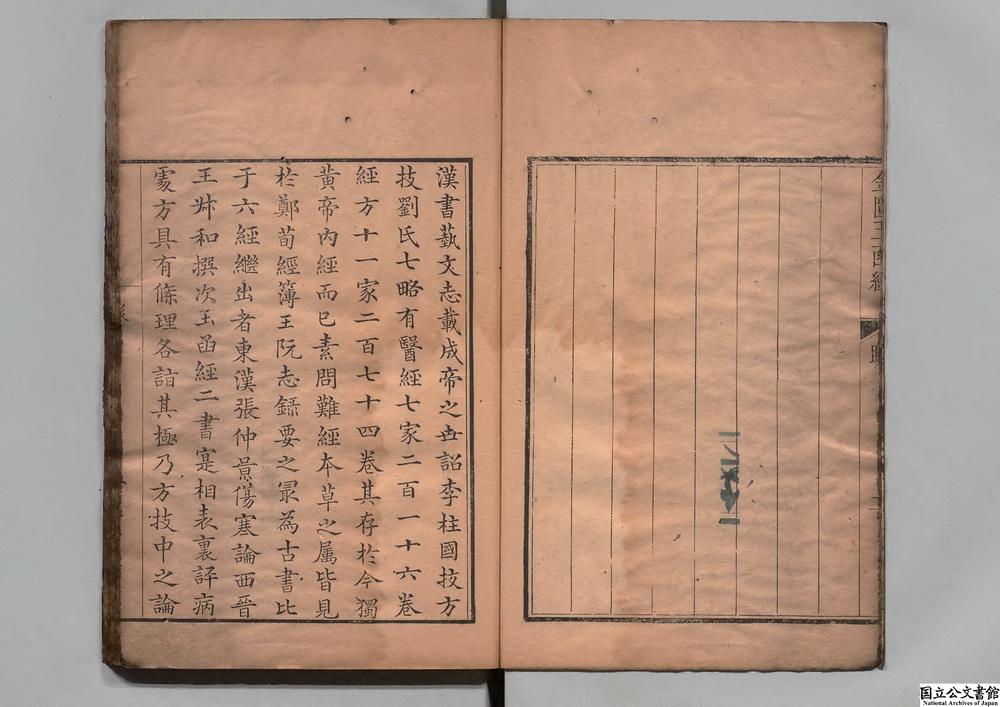 金匱玉函經
漢書藝文志載成帝之世詔李柱國技方
技劉氏七略有醫經七家二百一十六卷
經方十一家二百七十四卷其存於今獨
黃帝內經而已素問難經本草之屬皆見
於鄭荀經簿王阮志錄要之最為古書比
于六經繼出者東漢張仲景傷寒論西晉
王叔和撰次玉函經二書寔相表裏評病
處方具有條理各詣其極乃方技中之論
国立公文書館
National Archives of Japan